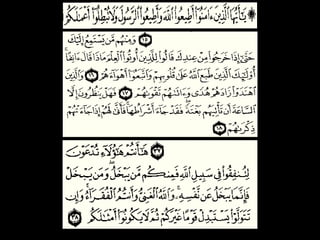 يَٰٓأَيُّهَا ٱلَّذِينَ ءَامَنُوٓا۟ أَطِيعُوا۟ ٱللَّهَ وَأَطِيعُوا۟ ٱلرَّسُولَ وَلَا تُبْطِلُوٓا۟ أَعْمَٰلَكُمْ
١٥ وَمِنْهُم مَّن يَسْتَمِعُ إِلَيْكَ
حَتَّىٰٓ إِذَا خَرَجُوا۟ مِنْ عِندِكَ قَالُوا۟ لِلَّذِينَ أُوتُوا۟ ٱلْعِلْمَ مَاذَا قَالَ ءَانِفًا
أُو۟لَٰٓئِكَ ٱلَّذِينَ طَبَعَ ٱللَّهُ عَلَىٰ قُلُوبِهِمْ وَٱتَّبَعُوٓا۟ أَهْوَآءَهُمْ ١٦ وَٱلَّذِينَ
ٱهْتَدَوْا۟ زَادَهُمْ هُدًى وَءَاتَىٰهُمْ تَقْوَىٰهُمْ ١٧ فَهَلْ يَنظُرُونَ إِلَّا
ٱلسَّاعَةَ أَن تَأْتِيَهُم بَغْتَةً فَقَدْ جَآءَ أَشْرَاطُهَا فَأَنَّىٰ لَهُمْ إِذَا جَآءَتْهُمْ
ذِكْرَىٰهُمْ ١٨
٣٧ هَٰٓأَنتُمْ هَٰٓؤُلَآءِ تُدْعَوْنَ
لِتُنفِقُوا۟ فِى سَبِيلِ ٱللَّهِ فَمِنكُم مَّن يَبْخَلُ وَمَن يَبْخَلْ
فَإِنَّمَا يَبْخَلُ عَن نَّفْسِهِۦ وَٱللَّهُ ٱلْغَنِىُّ وَأَنتُمُ ٱلْفُقَرَآءُ وَإِن
تَتَوَلَّوْا۟ يَسْتَبْدِلْ قَوْمًا غَيْرَكُمْ ثُمَّ لَا يَكُونُوٓا۟ أَمْثَٰلَكُم ٣٨